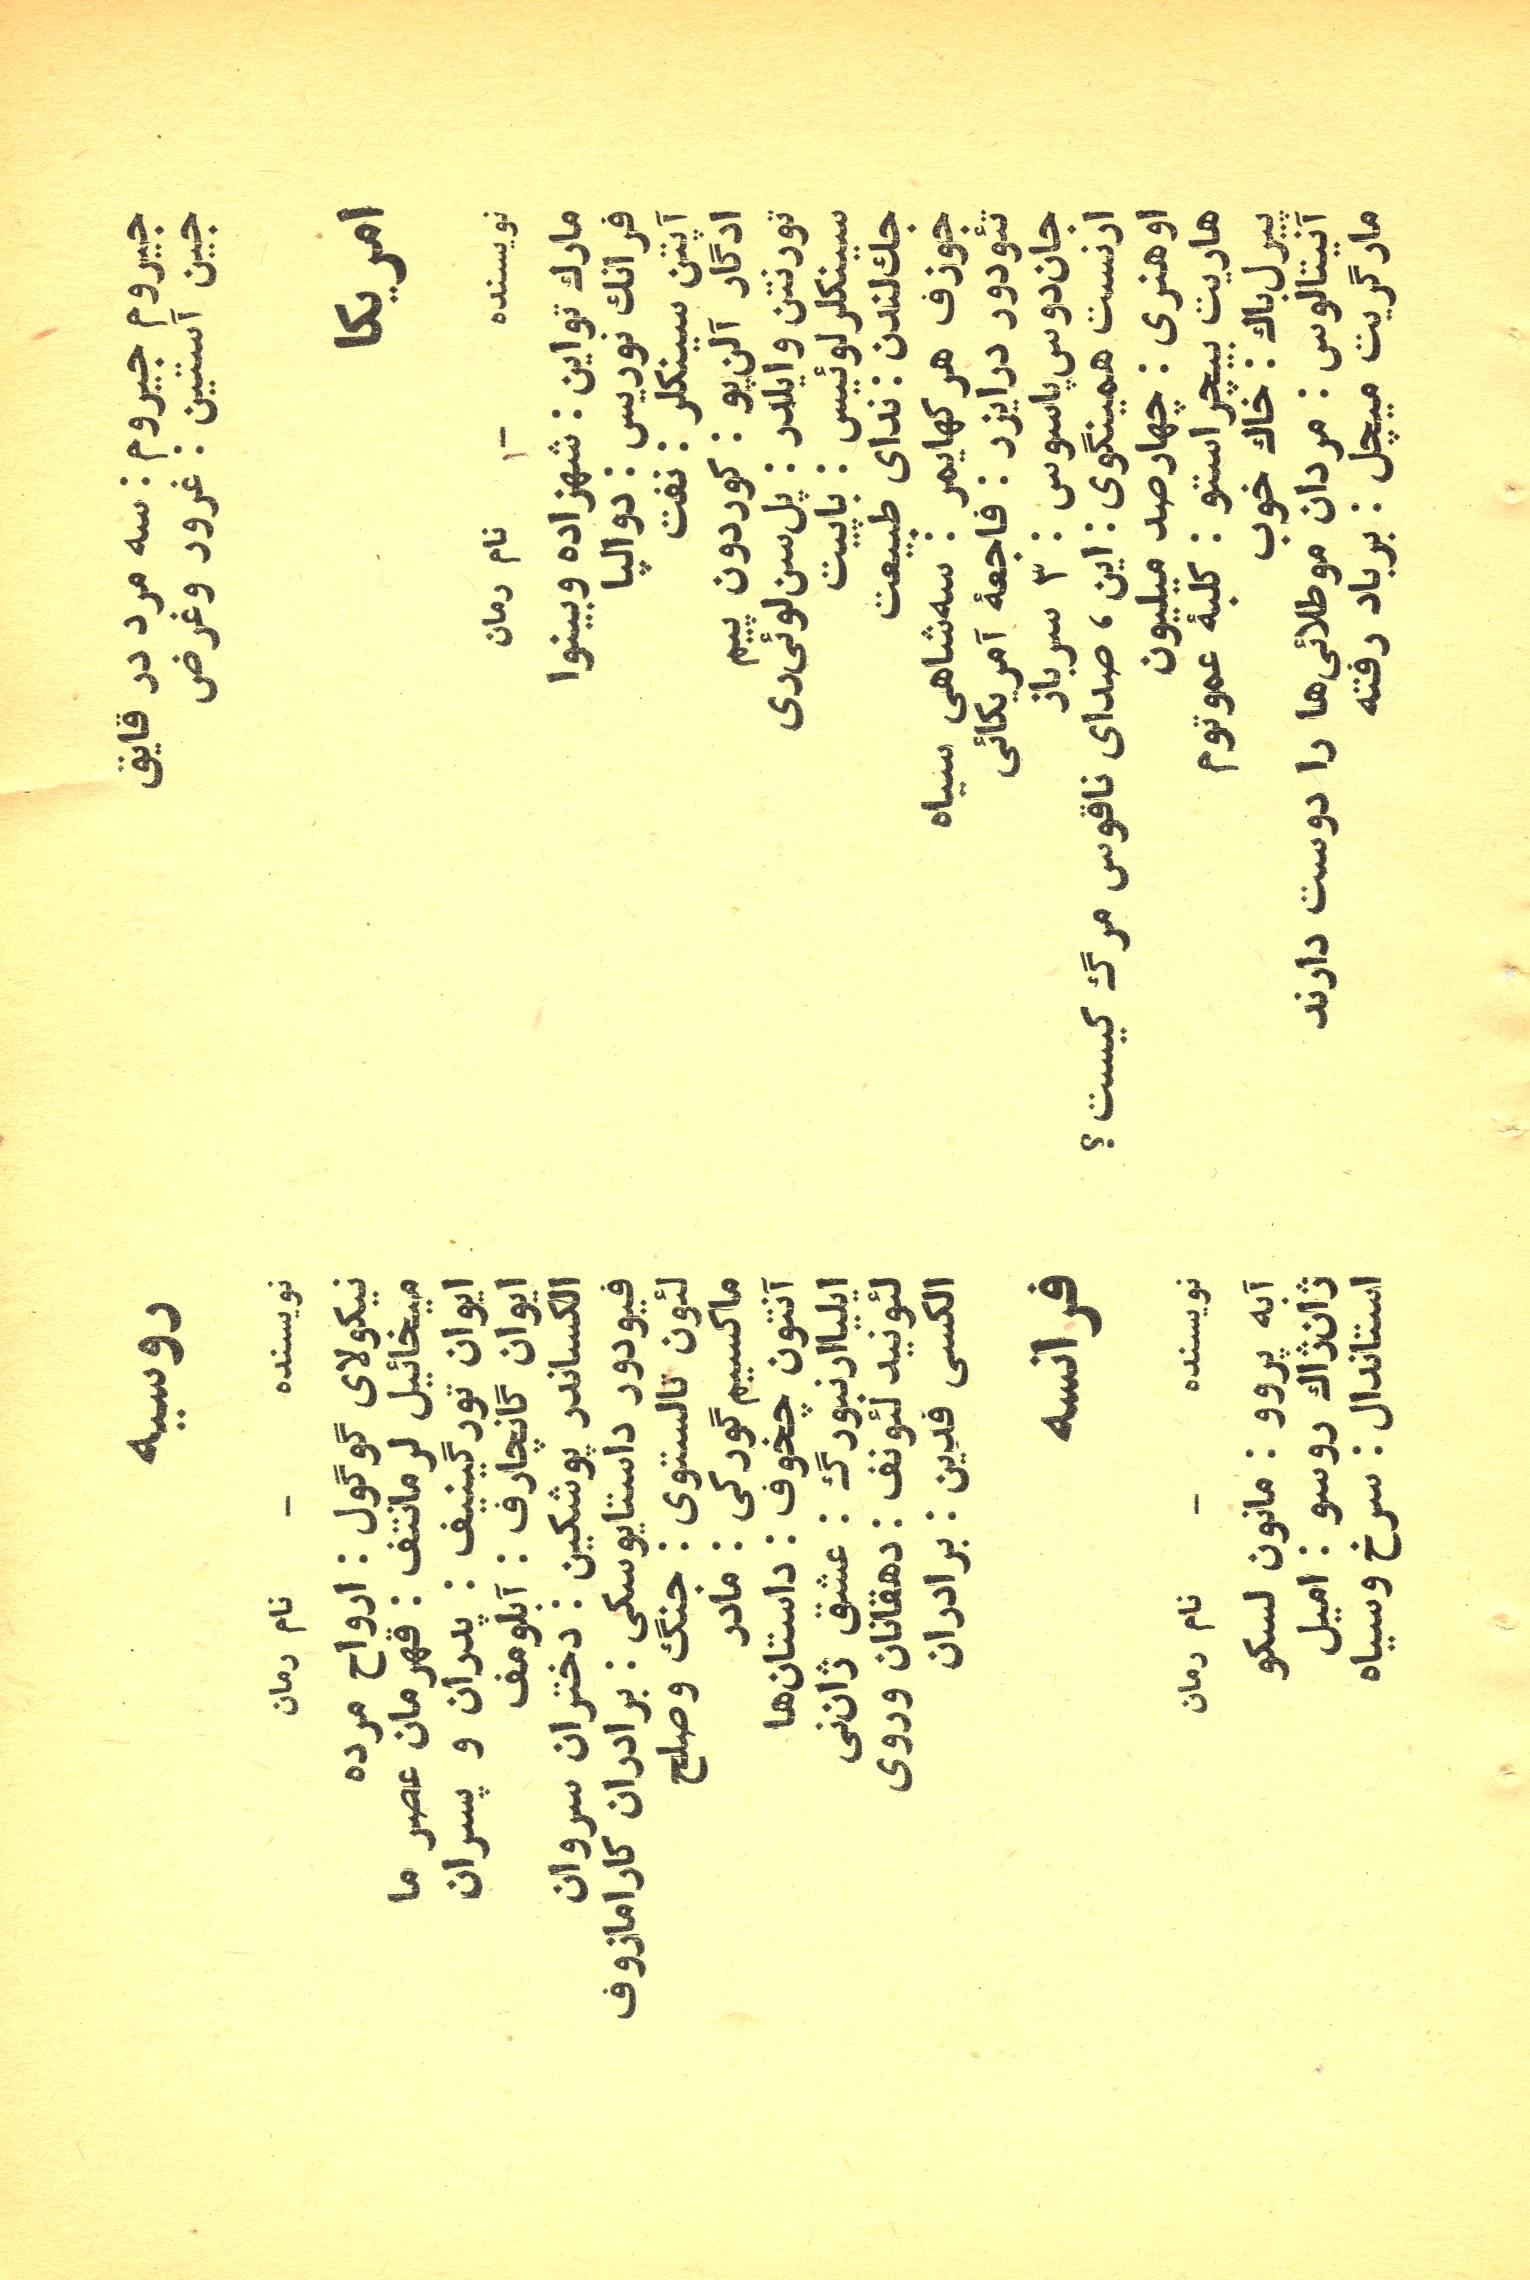 جیروم جیروم : سه مرد در قایق
جین آستین : غرور وغرض
امریکا
نویسنده – نام رمان
مارك تواین : شهزاده وبینوا
فرانك نوریس : دوالپا
آپتن سینکلر : نفت
ادگار آلن‌پو : کوردون پیم
تورنتن وایلدر : پل‌سن‌لوئی‌ری
سینکلر لوئیس : بابیت
جك‌لندن : ندای طبیعت
جوزف هرکهایمر : سه‌شاهی سیاه
تئودور درایزر : فاجعهٔ آمریکائی
جان‌دوس‌پاسوس : ۳ سرباز
ارنست همینگوی : این ، صدای ناقوس مرگ کیست ؟
اوهنری : چهارصد میلیون
هاریت بیچر استو : کلبهٔ عموتوم
پیرل‌باك : خاك خوب
آنیتالوس : مردان موطلائی‌ها را دوست دارند
مارگریت میچل : برباد رفته
روسیه
نویسنده – نام رمان
نیکولای گوگول : ارواح مرده
میخائیل لرمانتف : قهرمان عصر ما
ایوان تورگینیف : پدران و پسران
ایوان گانچارف : آبلومف
الکساندر پوشکین : دختران سروان
فیودور داستایوسکی : برادران کارامازوف
لئون تالستوی : جنگ وصلح
ماکسیم گورکی : مادر
آنتون چخوف : داستان‌ها
ایلیاارنبورگ : عشق ژان‌نی
لئونید لئونف : دهقانان وروی
الکسی فدین : برادران
فرانسه
نویسنده – نام رمان
آبه پروو : مانون لسکو
ژان‌ژاك روسو : امیل
استاندال : سرخ وسیاه